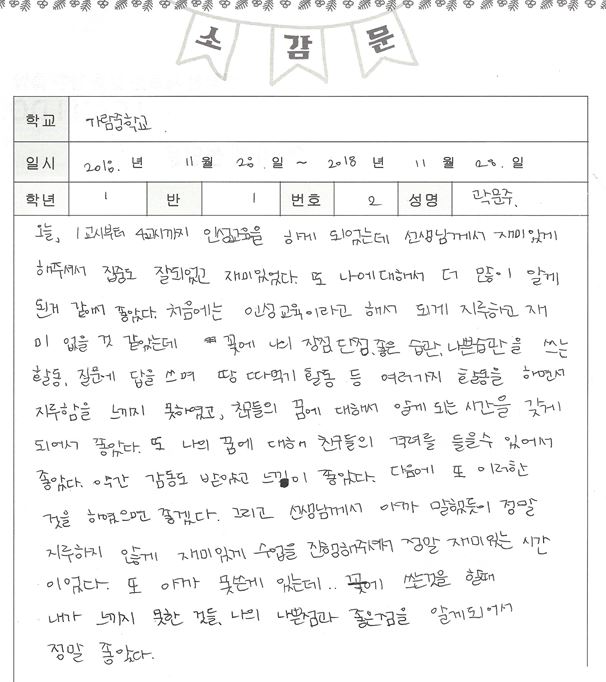 소감문
학교 가람중학교.
일시 2018. 년 11월 28. 일 ~ 2018 년 11 월 28. 일
학년 1 반 1 번호 2 성명 곽문주.
오늘, 1교시부터 4교시까지 인성교육을 하게 되었는데 선생님께서 재미있게
해주셔서 집중도 잘되었고 재미있었다. 또 나에대해서 더 많이 알게
된거 같애서 좋았다. 처음에는 인성교육이라고 해서 되게 지루하고 재
미 없을 것 같았는데 꽃에 나의 장점,단점,좋은 습관,나쁜습관을 쓰는
활동, 질문에 답을 쓰며 땅 따먹기 활동 등 여러가지 활동을 하면서
지루함을 느끼지 못하였고, 친구들의 꿈에 대해서 알게 되는 시간을 갖게
되어서 좋았다. 또 나의 꿈에 대해 친구들의 격려를 들을수 있어서
좋았다. 약간 감동도 받았고 느낌이 좋았다. 다음에 또 이러한
것을 하였으면 좋겠다. 그리고 선생님께서 아까 말했듯이 정말
지루하지 않게 재미있게 수업을 진행해주셔서 정말 재미있는 시간
이었다. 또 아까 못쓴게 있는데.. 꽃에 쓰는것을 할때
내가 느끼지 못한 것들, 나의 나쁜점과 좋은점을 알게되어서
정말 좋았다.